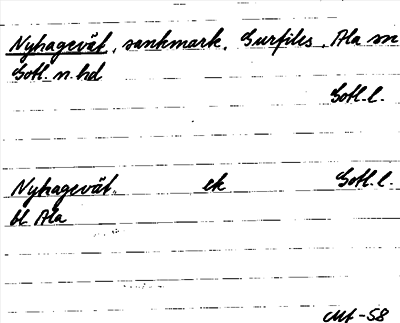 Nyhagevät, sankmark, Gurfiles, Ala sn
Gotl. n. hd
Gotl. l.
Nyhagevät ek Gotl. l.
bl Ala
-58